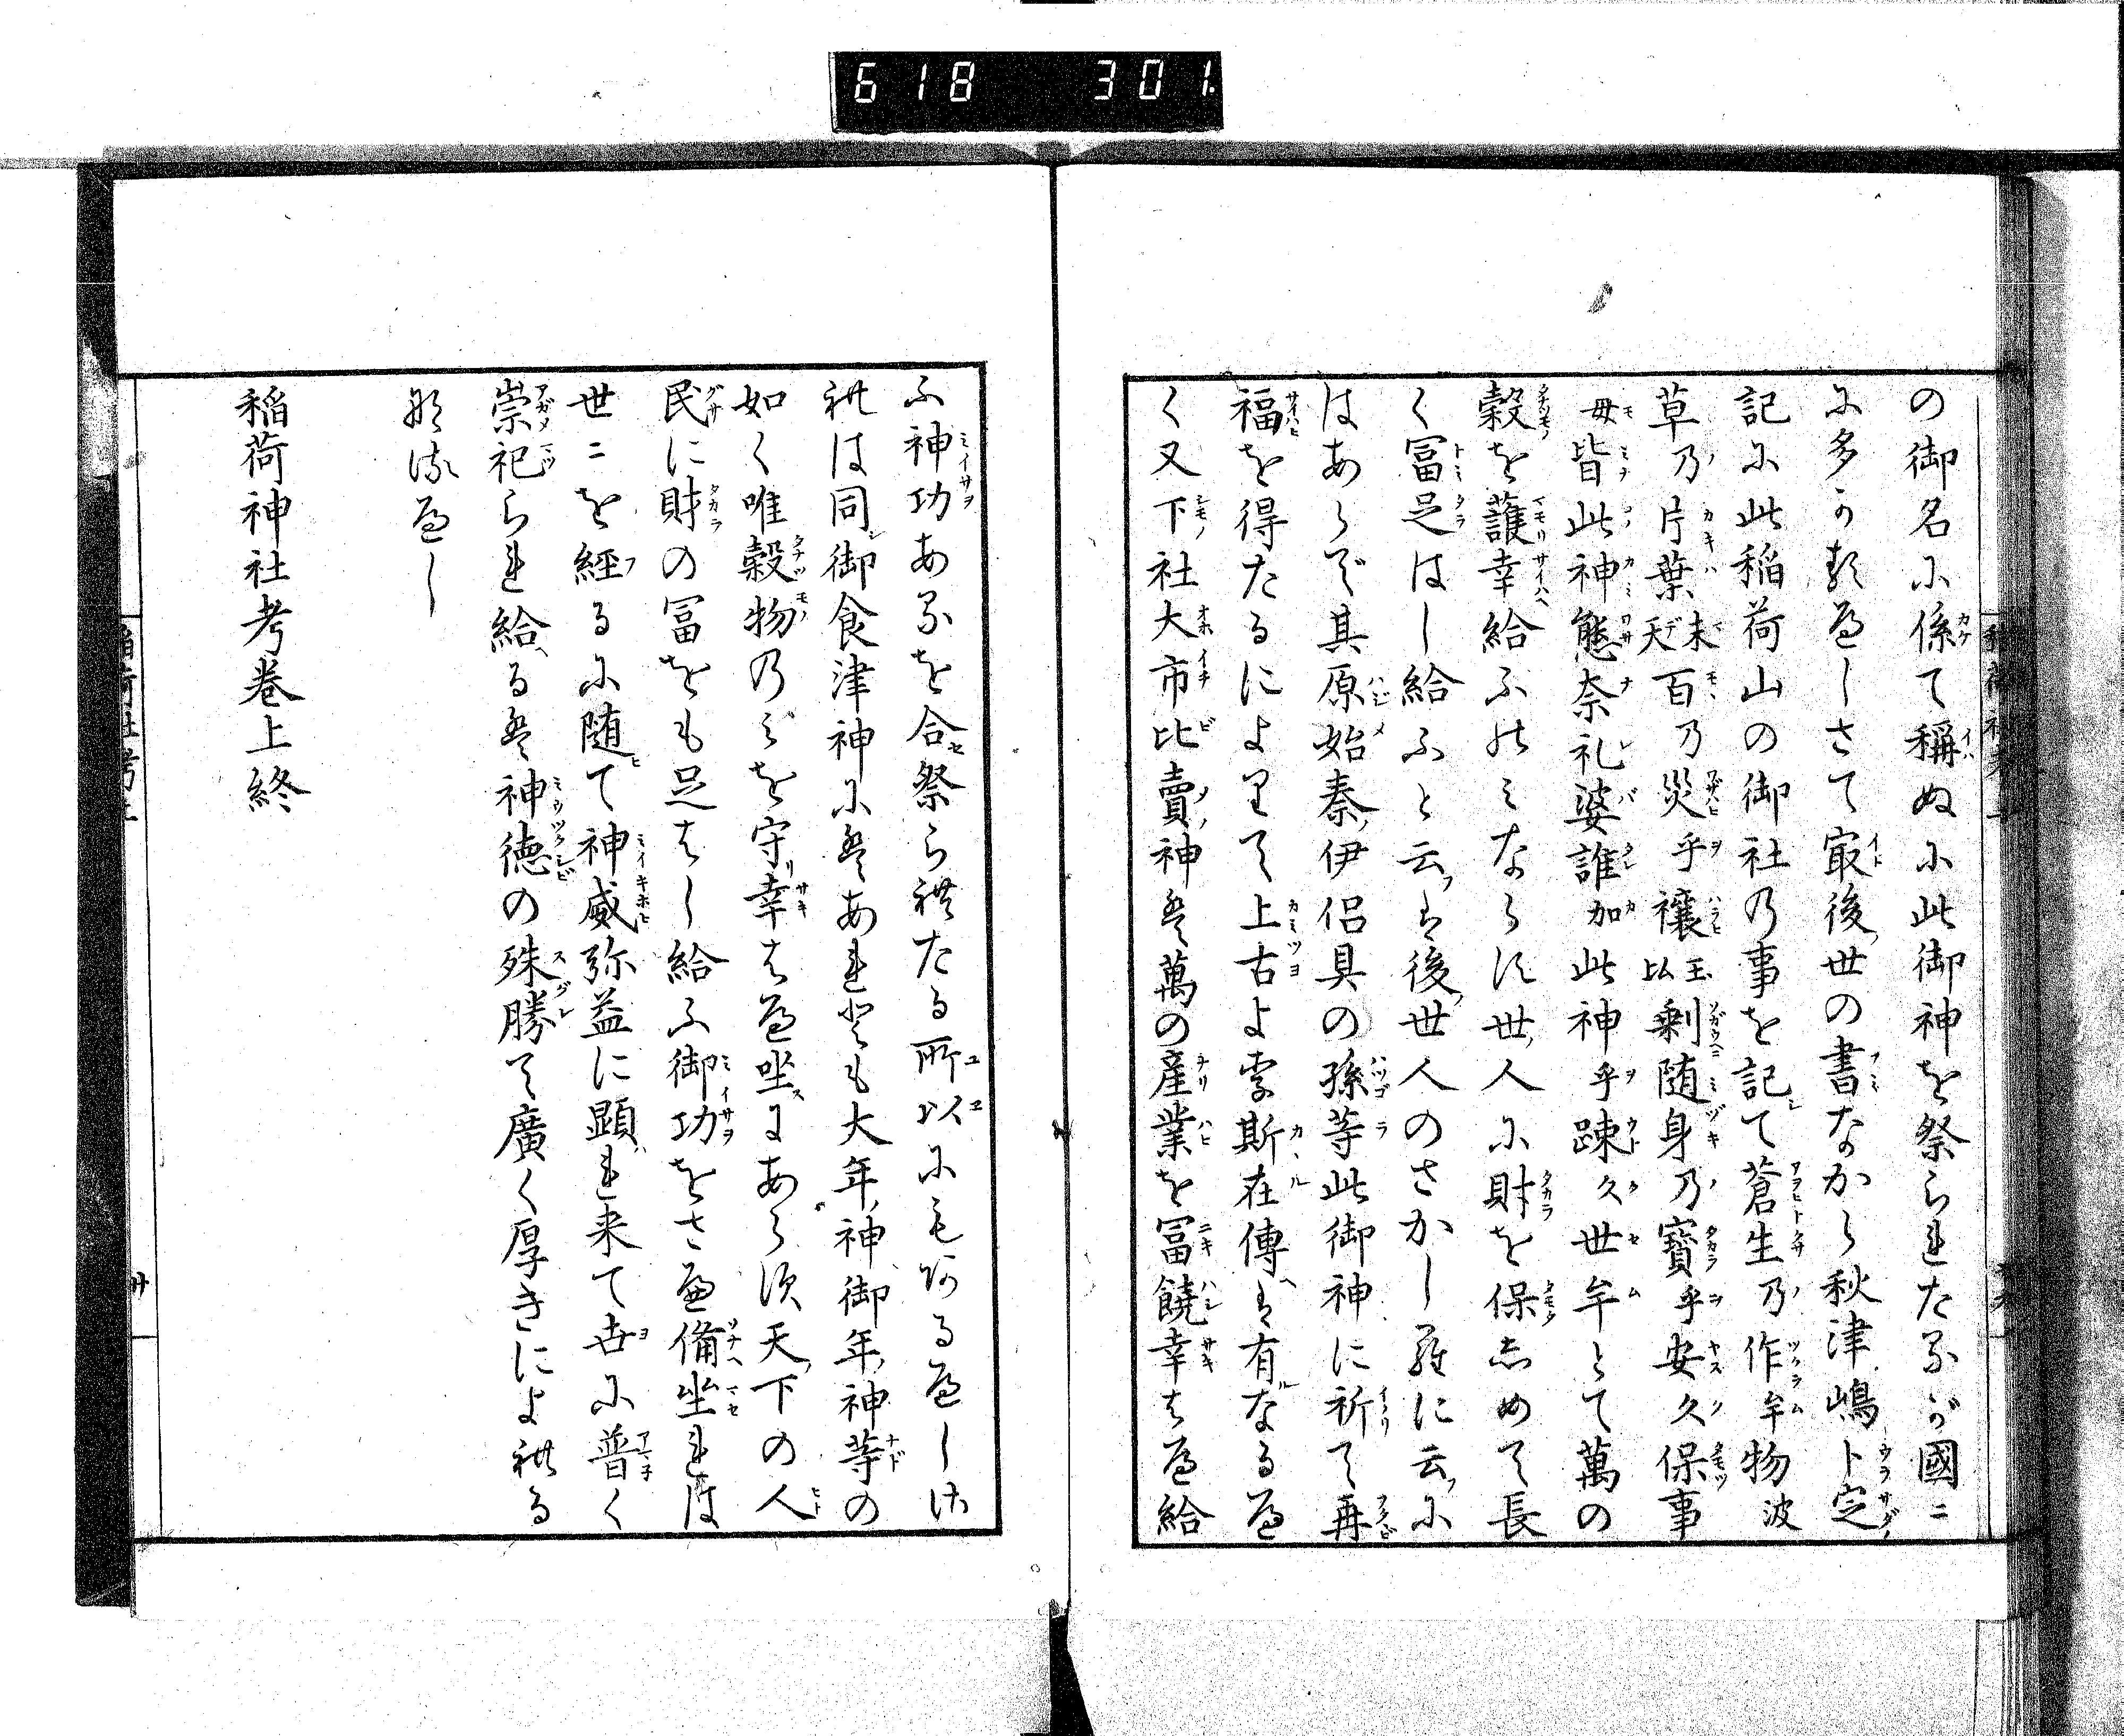 618 301
の御名に係て稱ぬに此御神を祭られたるが國ニ
に多かるべしさて冣後世の書なから秋津嶋卜定
記に此稲荷山の御社乃事を記て蒼生乃作牟物波
草乃片葉末天百乃災乎禳比玉剰随身乃寳乎安久保事
毋皆此神態奈礼婆誰加此神乎踈久世牟とて萬の
穀を護幸給ふのみならす世人に財を保しめて長
く冨足はし給ふと云は後世人のさかしらに云に
はあらで其原始秦伊侶具の孫等此御神に祈て再
福を得たるによりて上古より斯在傳は有なるべ
く又下社大市比賣神は萬の産業を冨饒幸はへ給
ふ神功あるを合祭られたる所以にもあるべし
れは同御食津神にはあれども大年神御年神等の
如く唯穀物乃みを守幸はへ坐にあらす天下の人
民に財の冨をも足はし給ふ御功をさへ備坐れは
世ニを経るに随て神威弥益に顕れ来て世に普く
崇祀られ給るは神徳の殊勝て廣く厚きによれる
なるべし
稲荷神社考巻上終